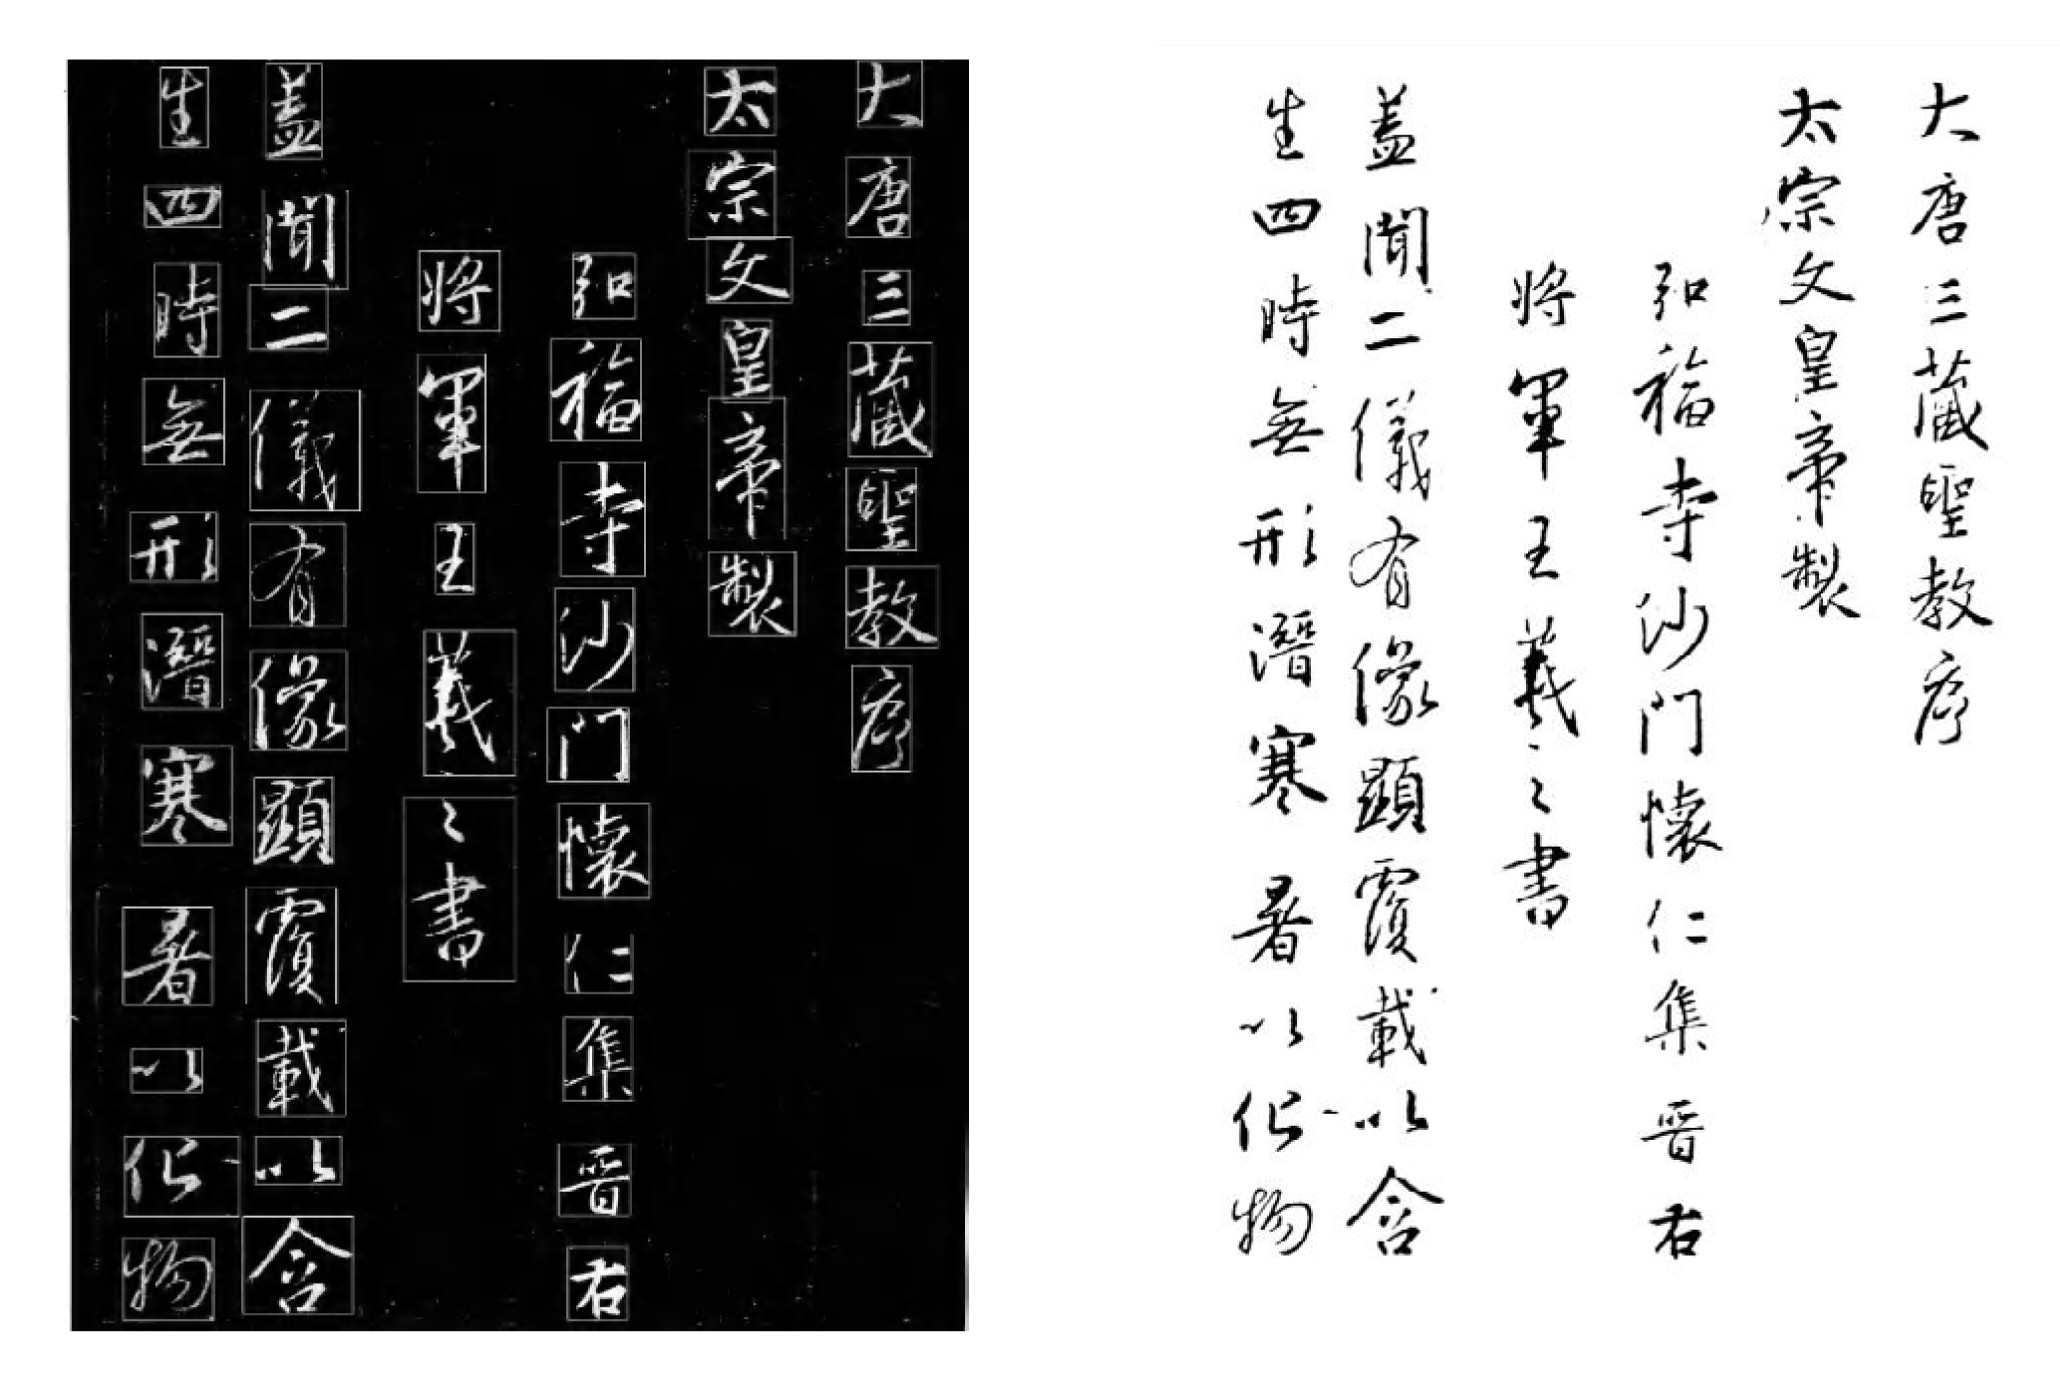 大唐三藏聖教序
太宗文皇帝製
弘福寺沙門懷仁集晋右
將軍王羲之書
蓋聞二儀有像顯覆載以含
生四時無形潛寒暑以化物
大唐三藏聖教序
太宗文皇帝製
弘福寺沙門懷仁集晋右
將軍王羲之書
蓋聞二儀有像顯覆載以含
生四時無形潛寒暑以化物